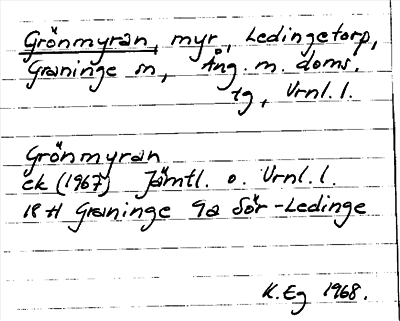 Grönmyran, myr, Ledingetorp,
Graninge sn, Ång. m. doms.
tg, Vrnl. l.
Grönmyran
ek (1967) Jämtl. o. Vrnl. l.
18 H Graninge 9a Sör-Ledinge
K. Eg 1968.